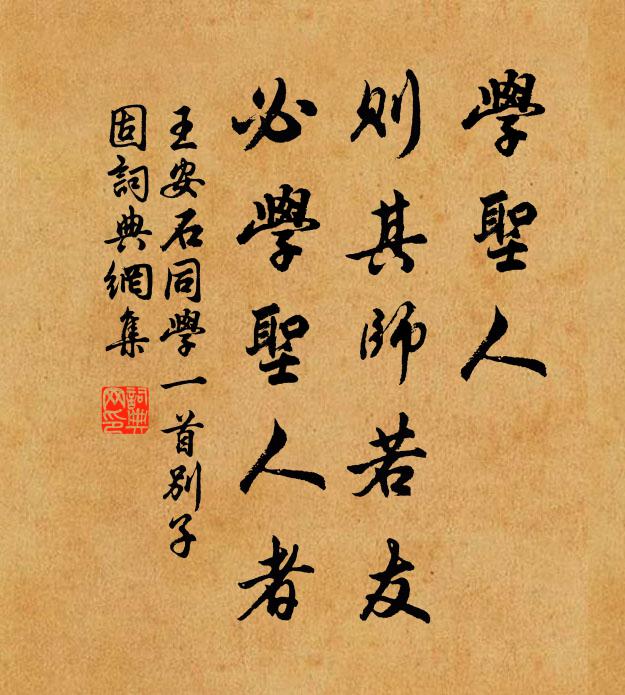 學聖人
則其師若友
必學聖人者
王安石同學一首別子
固詞典網集
詞典
网印